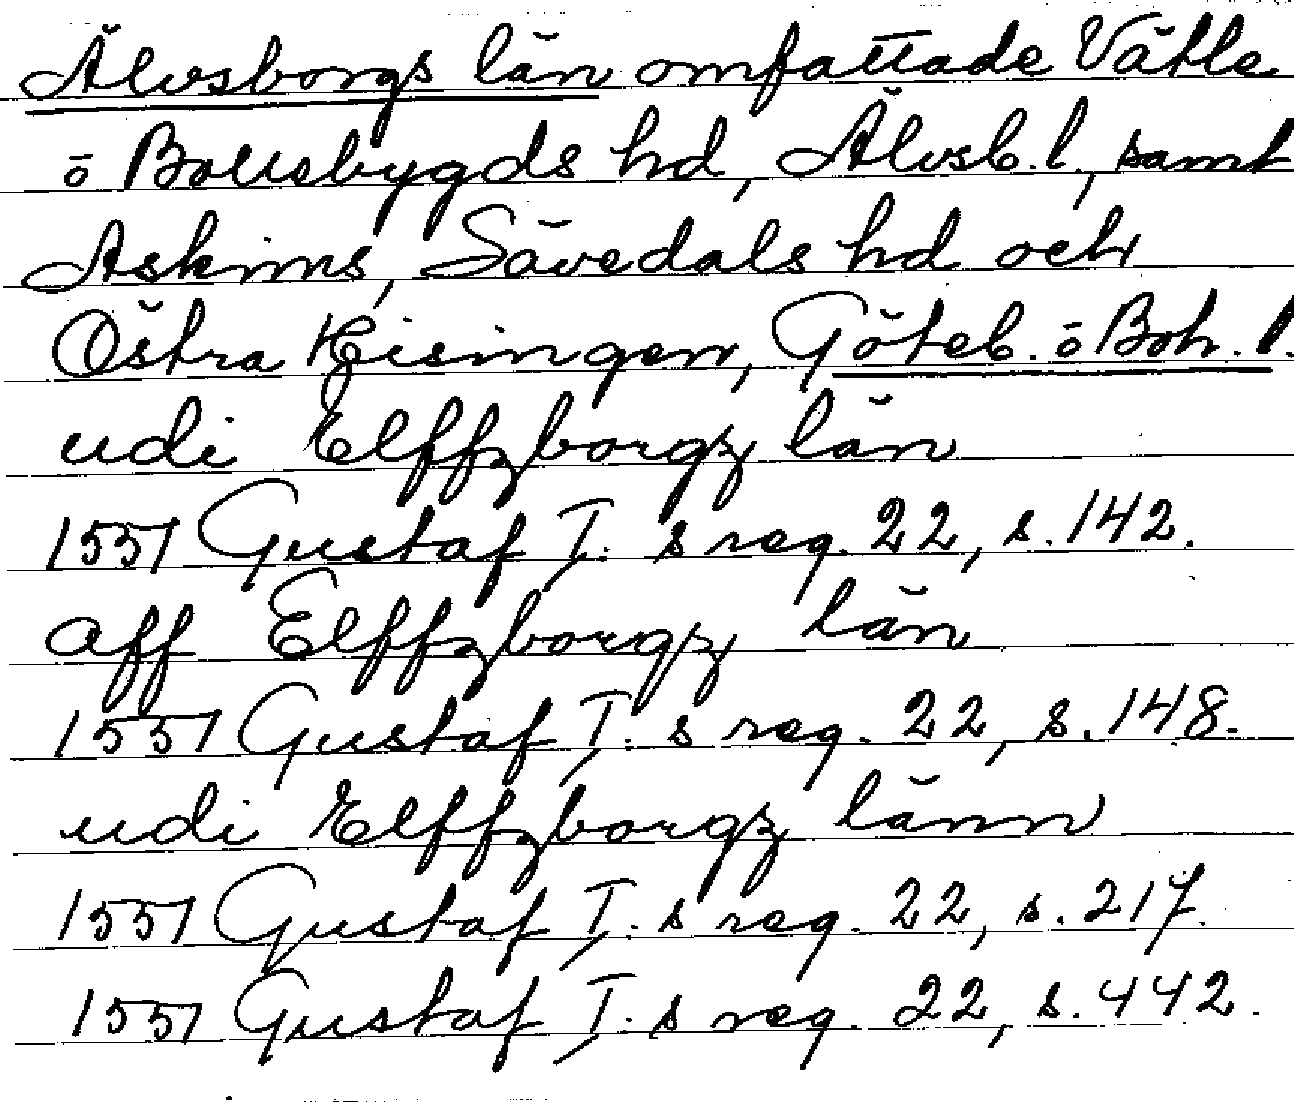 Älvsborgs län omfattade Vättle
o Bollebygds hd, Älvsb. l., samt
Askims, Sävedals hd och
Östra Hisingen, Göteb. o Boh. l.
udi Elffzborgz län
1551 Gustaf I:s reg. 22, s. 142.
aff Elffzborgz län
1551 Gustaf I:s reg. 22, s. 148.
udi Elffzborgz länn
1551 Gustaf I:s reg. 22, s. 217.
1551 Gustaf I:s reg. 22, s. 442.